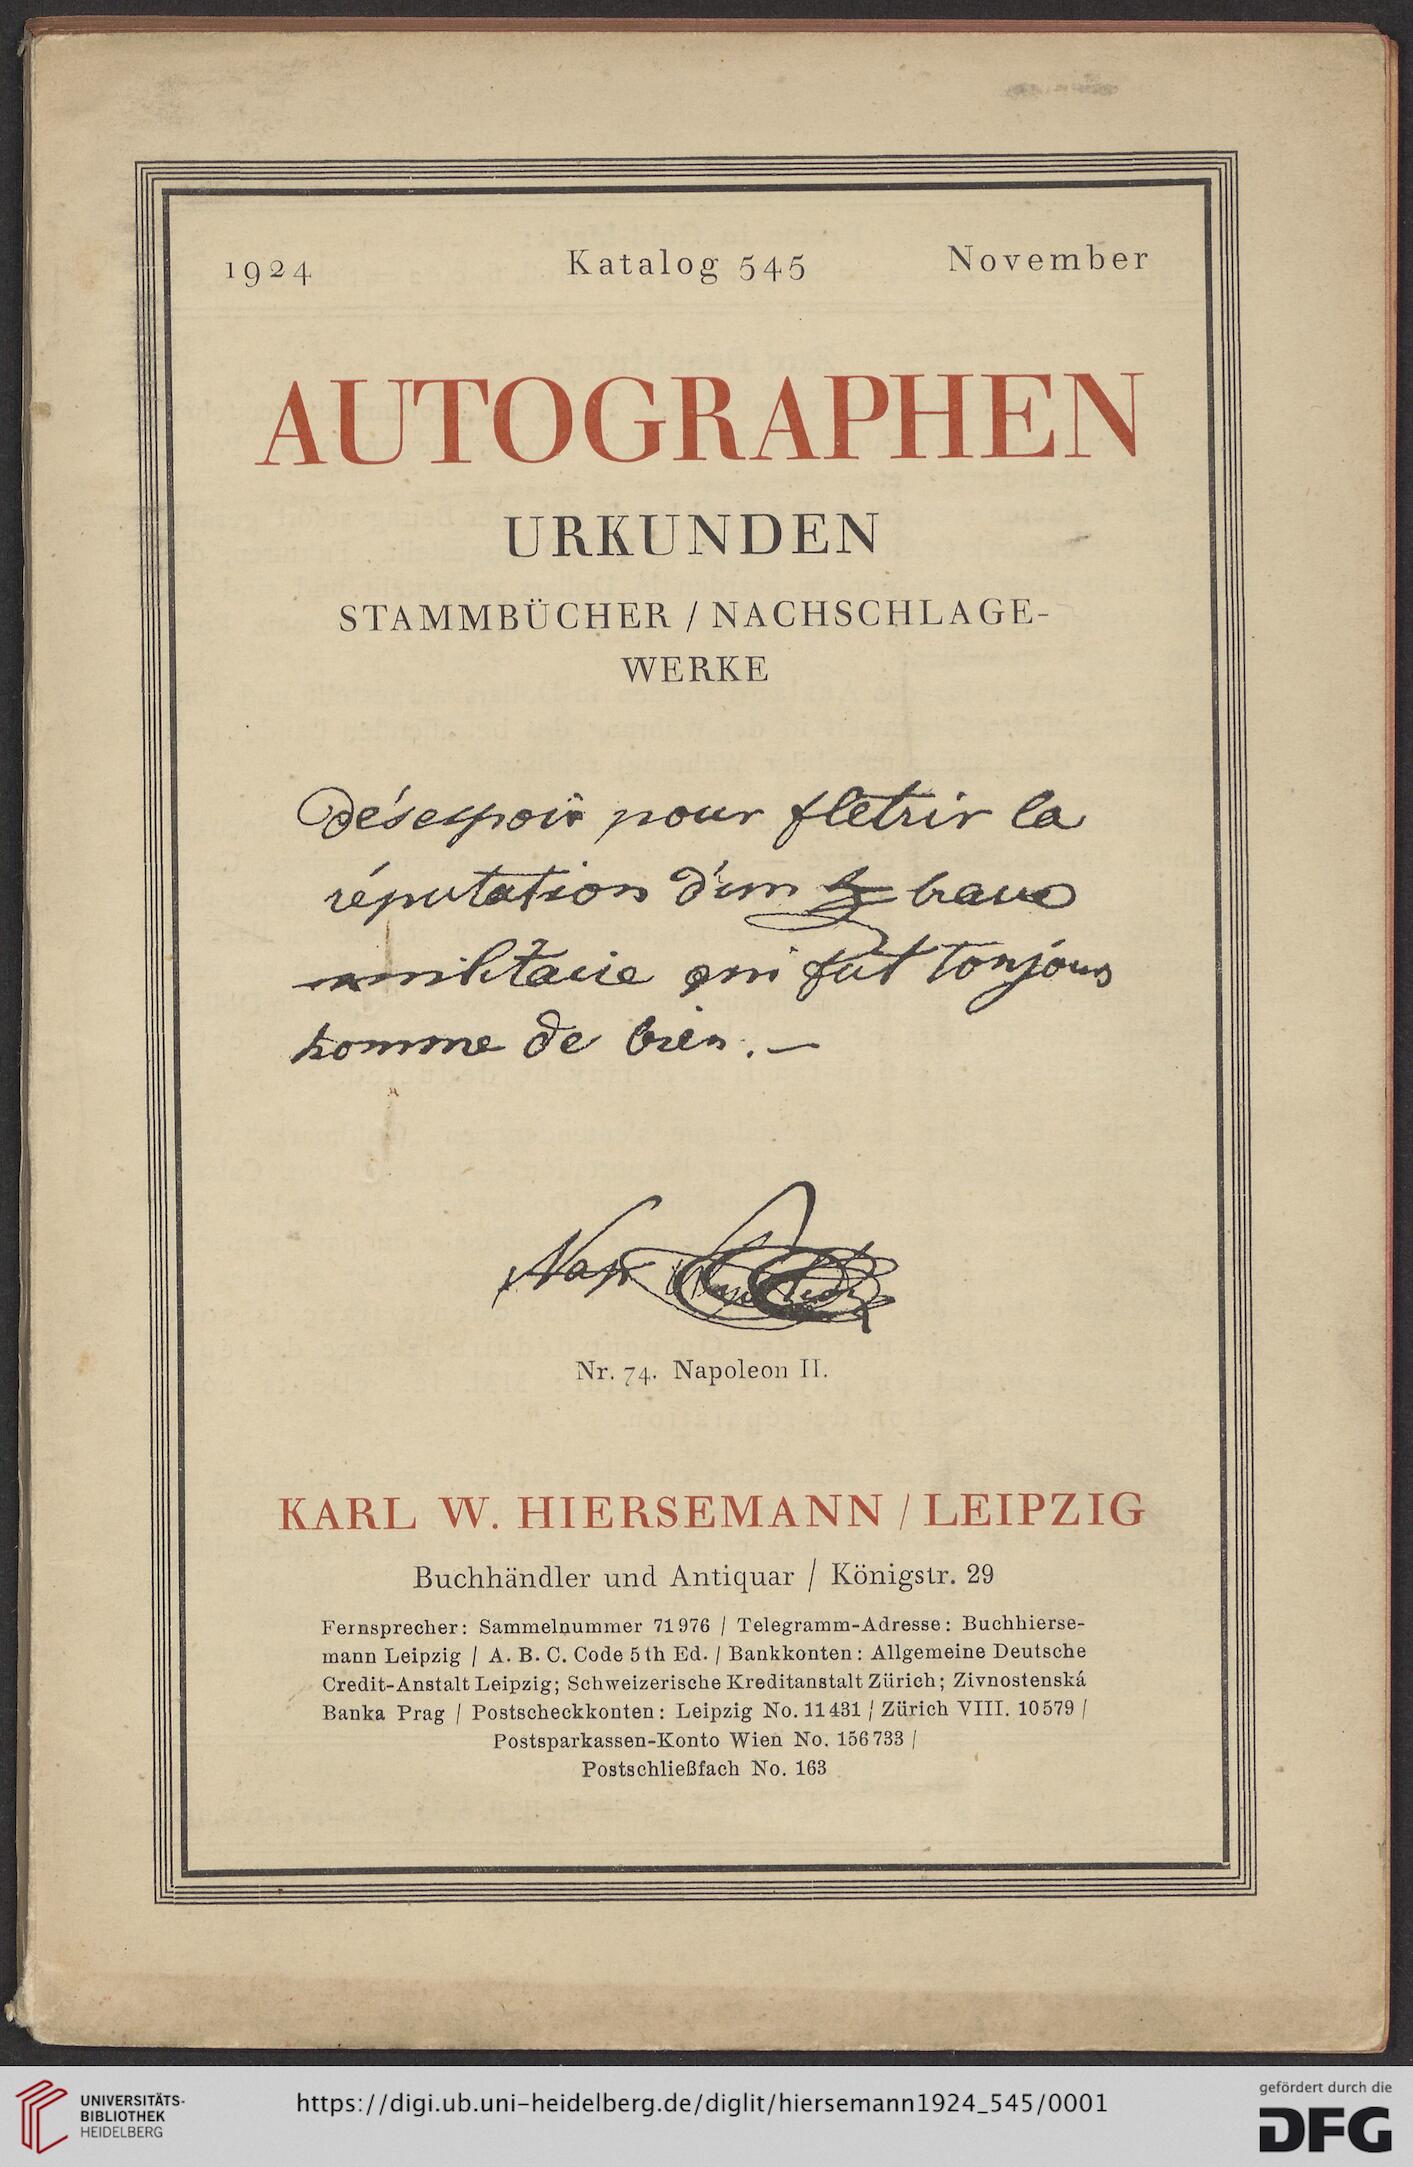 1924 Katalog 545 November
AUTOGRAPHEN
URKUNDEN
STAMMBÜCHER / NACHSCHLAGE-
WERKE
Désespoir pour fletrir la
réputation d'un brave
militaire qui fut toujours
homme de bien. —
Nap
Nr. 74. Napoleon II.
KARL W. HIERSEMANN / LEIPZIG
Buchhändler und Antiquar / Königstr. 29
Fernsprecher: Sammelnummer 71976 / Telegramm-Adresse: Buchhierse-
mann Leipzig / A. B. C. Code 5th Ed. / Bankkonten: Allgemeine Deutsche
Credit-Anstalt Leipzig; Schweizerische Kreditanstalt Zürich; Zivnostenská
Banka Prag / Postscheckkonten: Leipzig No. 11431 / Zürich VIII. 10579 /
Postsparkassen-Konto Wien No. 156733 /
Postschließfach No. 163
UNIVERSITÄTS-
BIBLIOTHEK
HEIDELBERG
https://digi.ub.uni-heidelberg.de/diglit/hiersemann1924_545/0001
gefördert durch die
DFG